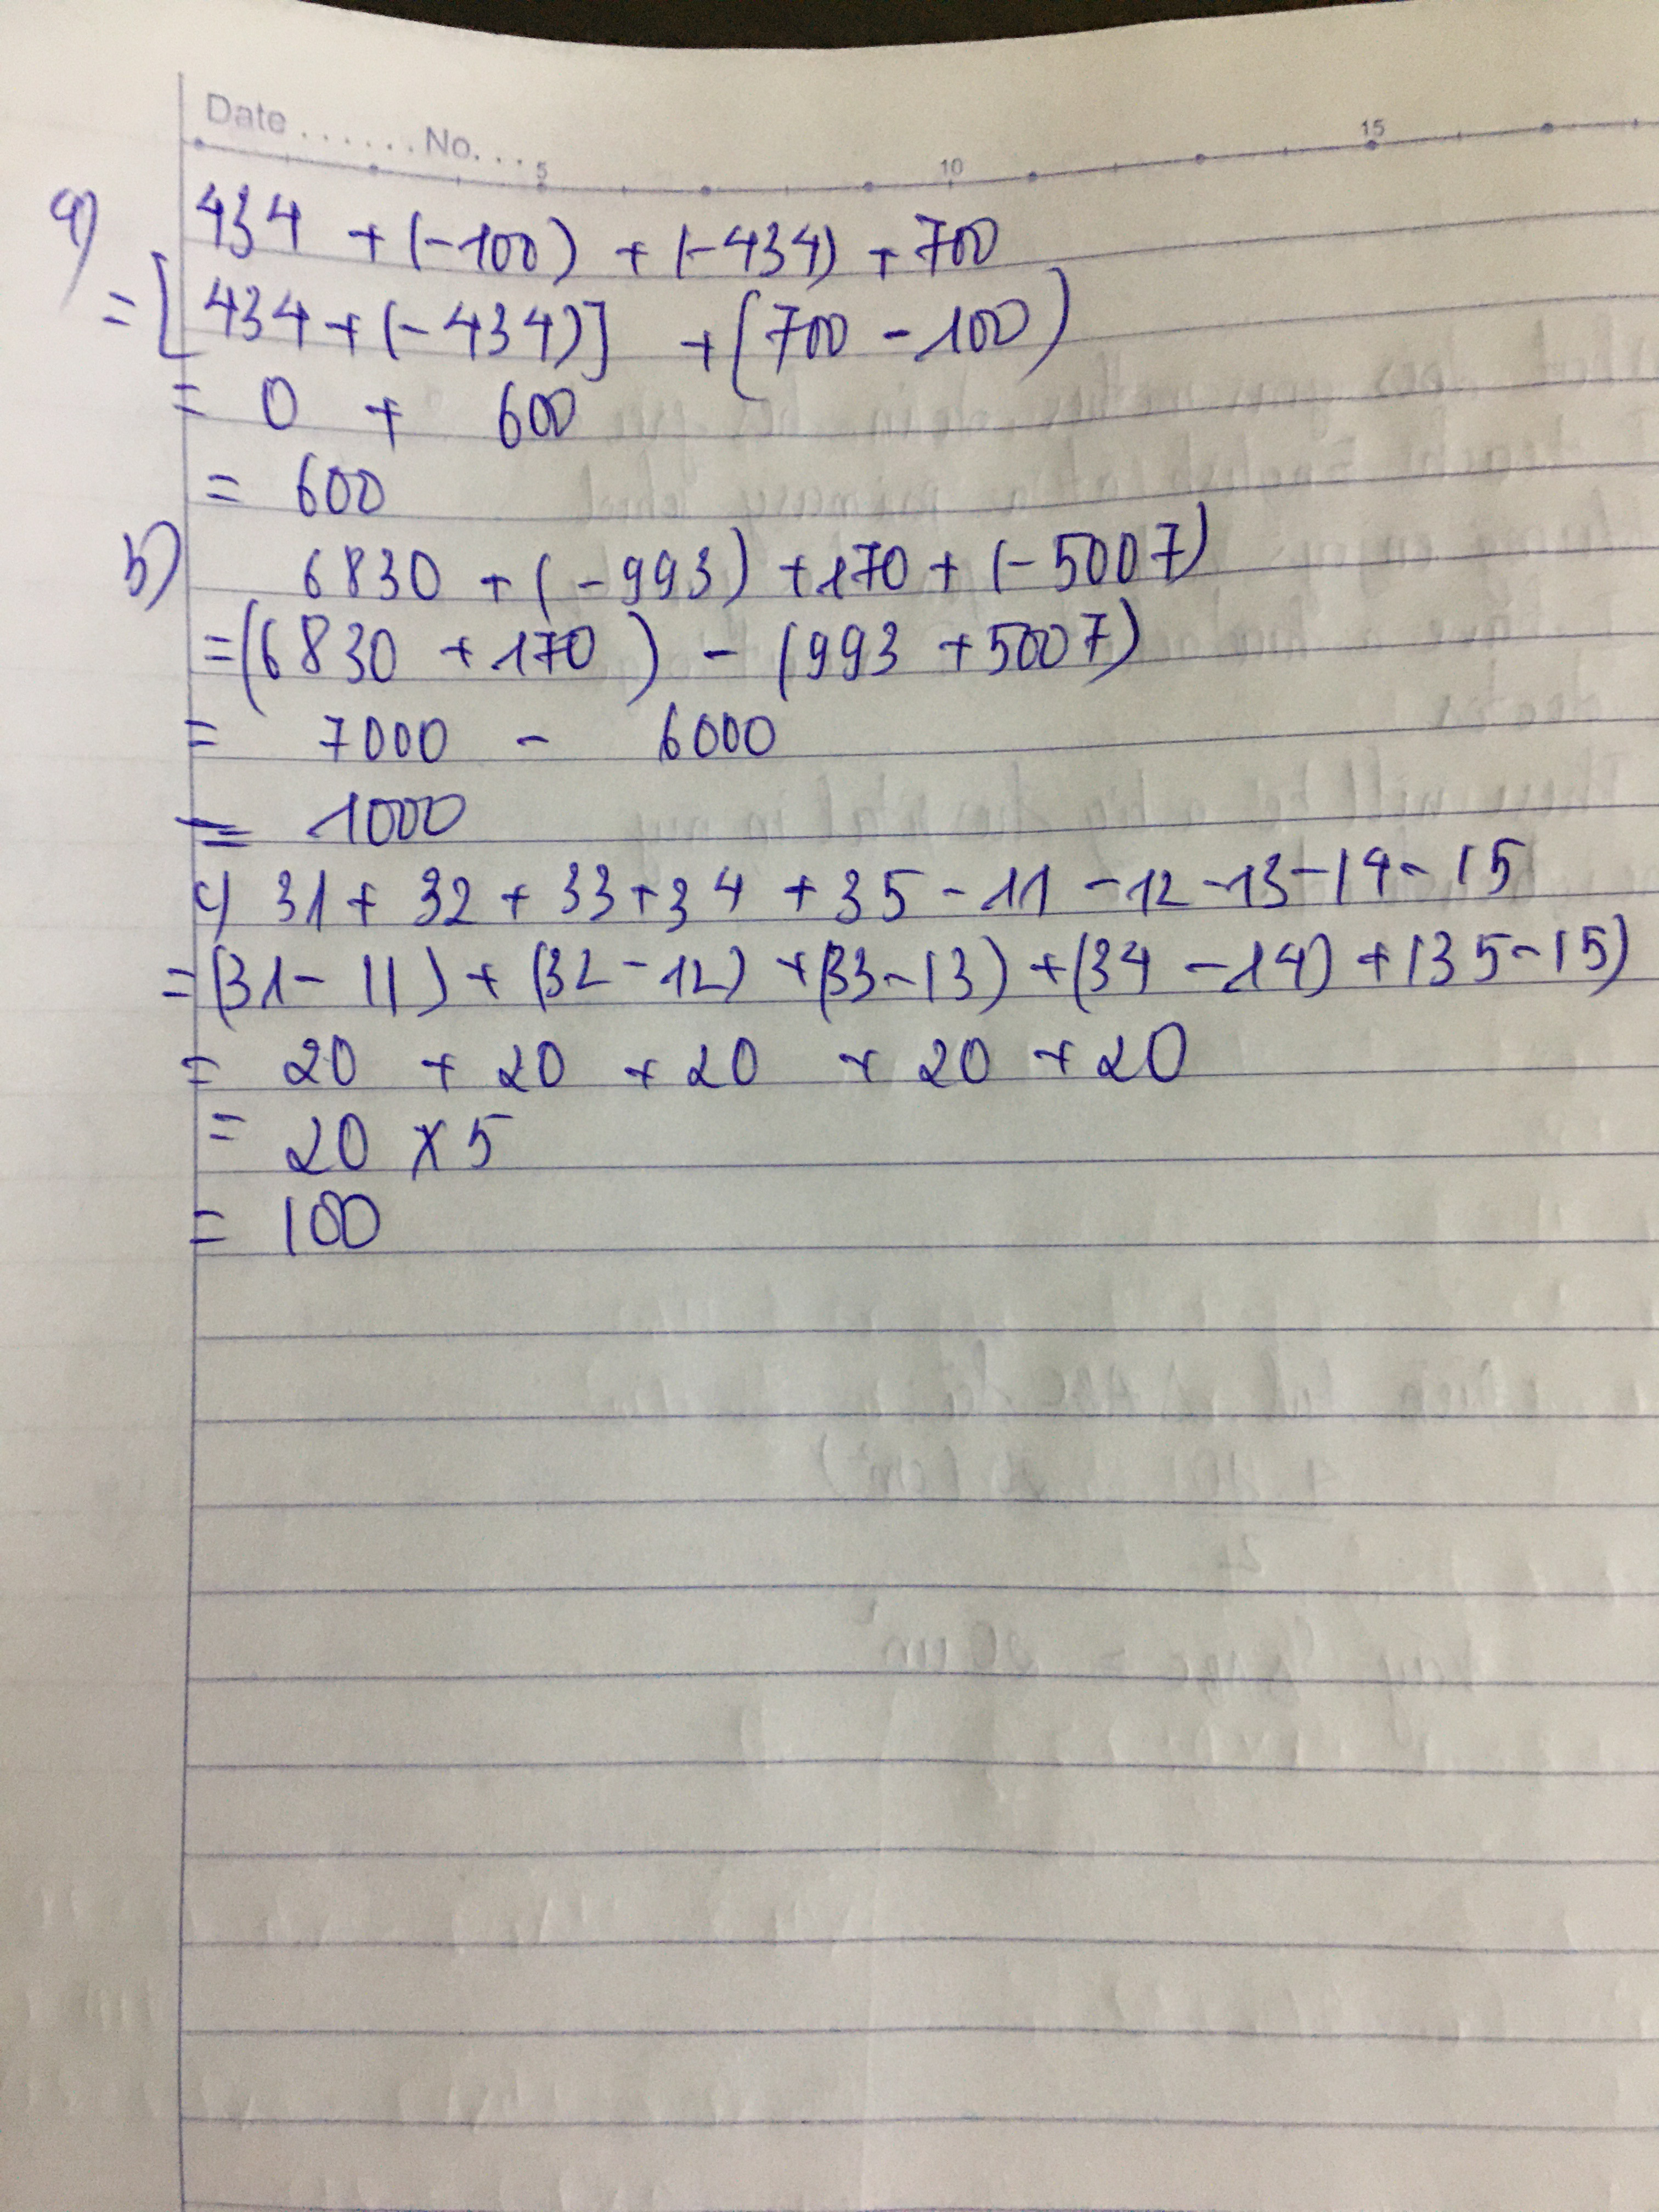 Date ...... No. ...
5 10 15
a) 434 + (-100) + (-434) + 700
= [434 + (-434)] + (700 - 100)
= 0 + 600
= 600
b) 6830 + (-993) + 170 + (-5007)
= (6830 + 170) - (993 + 5007)
= 7000 - 6000
= 1000
c) 31 + 32 + 33 + 34 + 35 - 11 - 12 - 13 - 14 - 15
= (31 - 11) + (32 - 12) + (33 - 13) + (34 - 14) + (35 - 15)
= 20 + 20 + 20 + 20 + 20
= 20 x 5
= 100